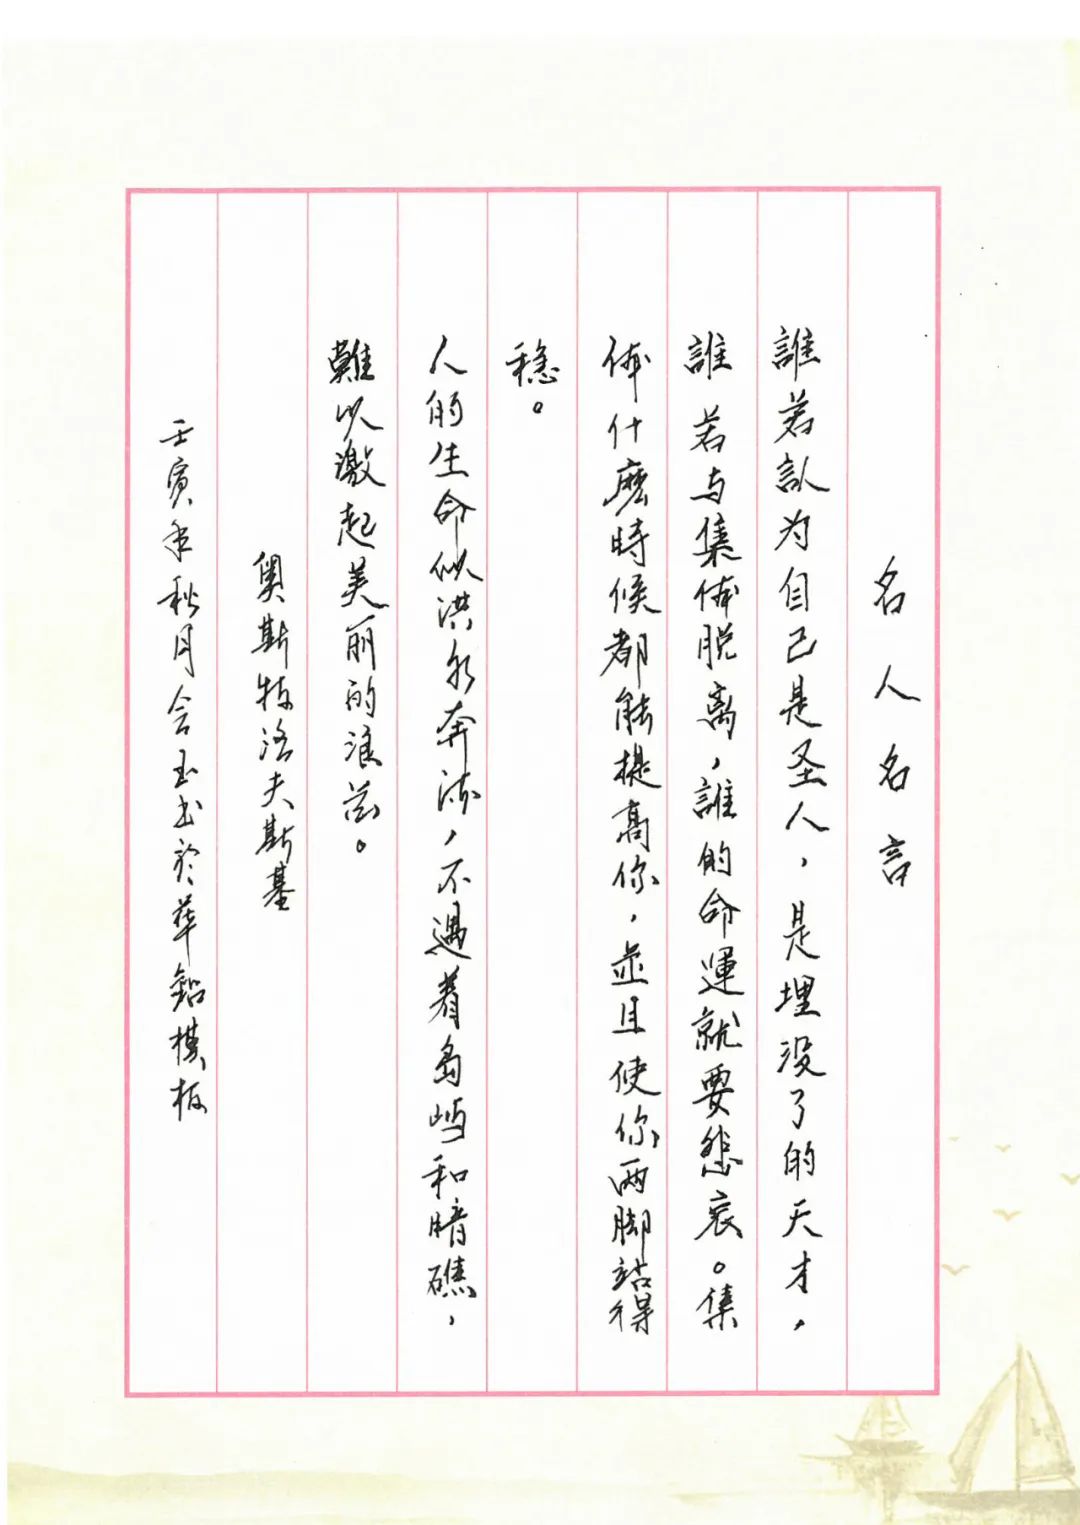 名人名言
誰若认为自己是圣人，是埋没了的天才，
誰若与集体脱离，誰的命運就要悲哀。集
体什麽時候都能提高你，並且使你两脚站得
稳。
人的生命似洪水奔流，不遇着岛屿和暗礁，
難以激起美丽的浪花。
奥斯特洛夫斯基
壬寅年秋月会玉书於華鋁模板